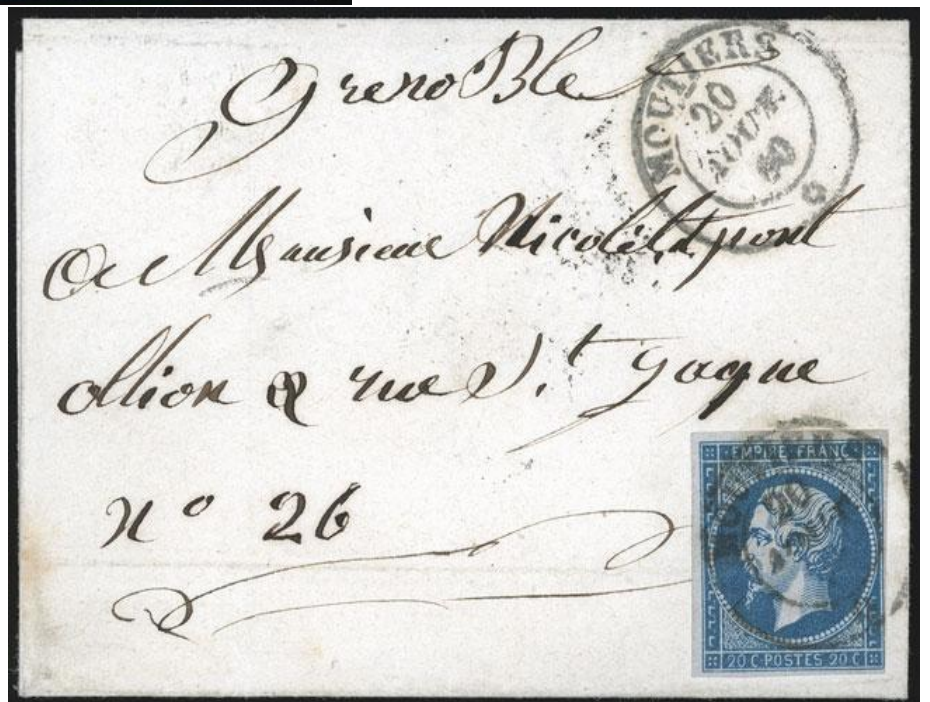 Grenoble
MOUTIERS
20
AOUT
60
A Monsieur Nicolet, pont
ollion & rue St. Jaque
N° 26
EMPIRE FRANC
20
20 C. POSTES 20 C.